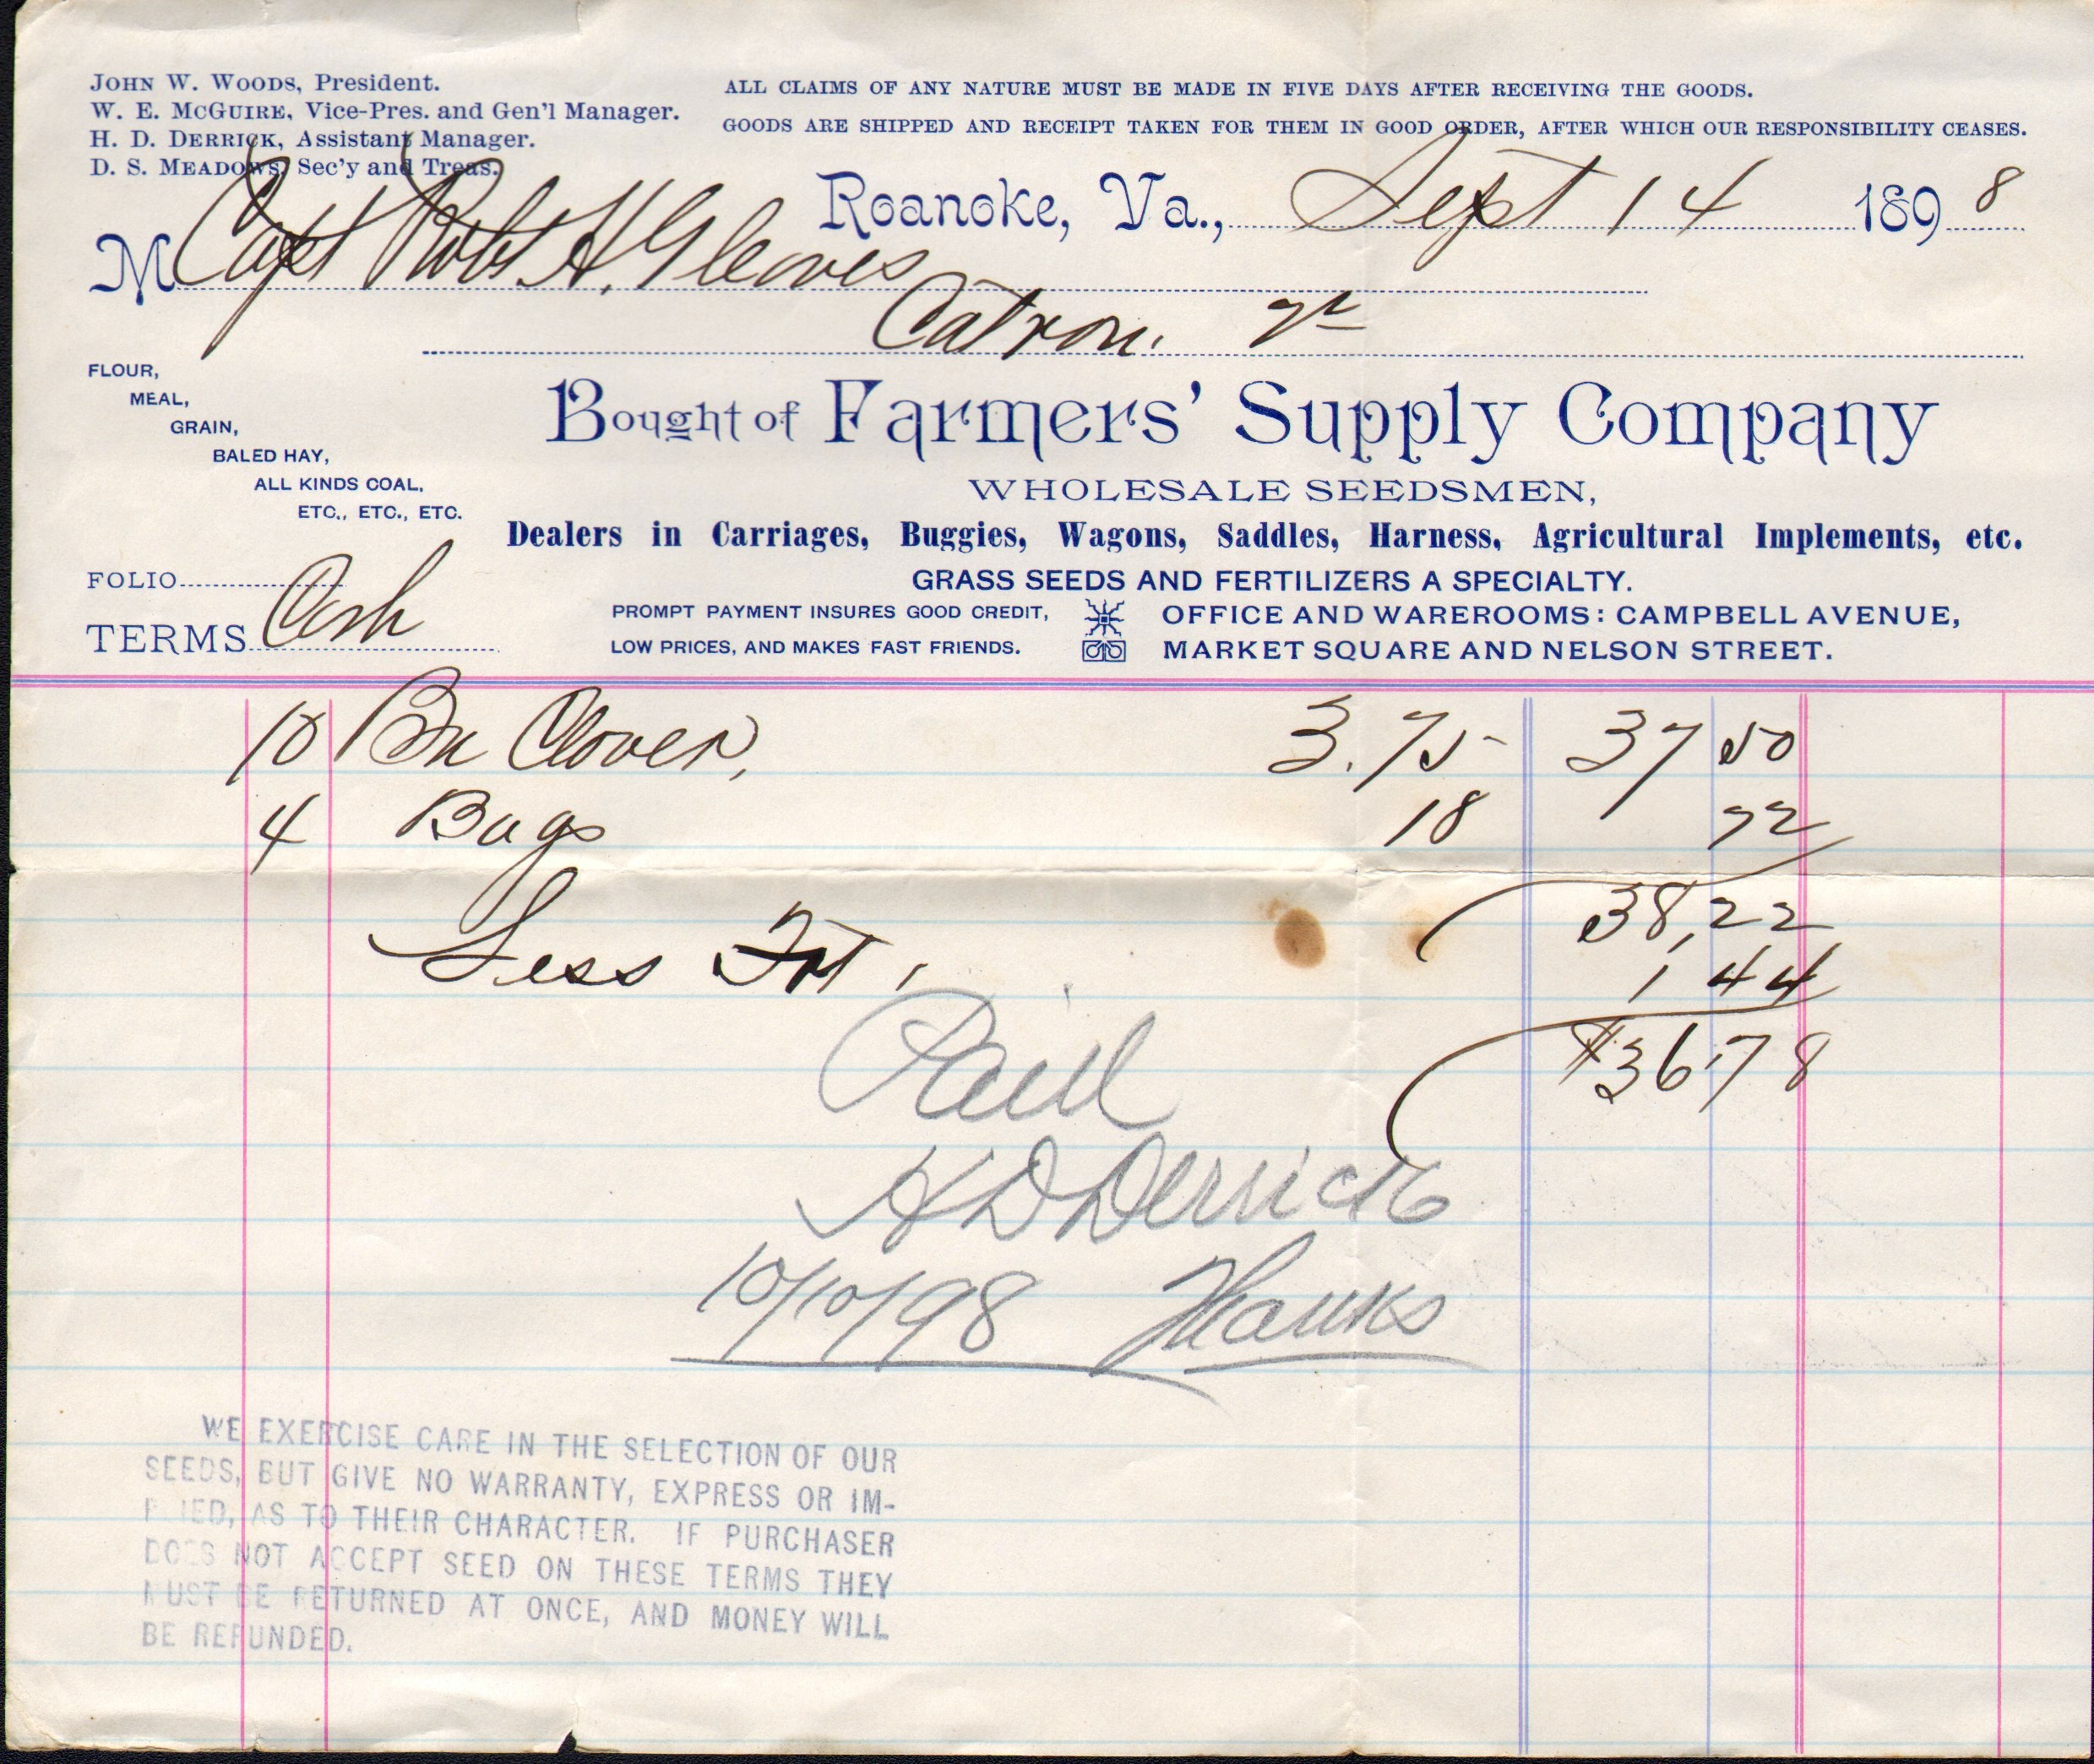 JOHN W. WOODS, President.
W. E. MCGUIRE, Vice-Pres. and Gen'l Manager.
H. D. DERRICK, Assistant Manager.
D. S. MEADOWS, Sec'y and Treas.
ALL CLAIMS OF ANY NATURE MUST BE MADE IN FIVE DAYS AFTER RECEIVING THE GOODS.
GOODS ARE SHIPPED AND RECEIPT TAKEN FOR THEM IN GOOD ORDER, AFTER WHICH OUR RESPONSIBILITY CEASES.
Roanoke, Va., Sept 14 1898
M Capt Robt H. Gleaves
Catron. Va
FLOUR,
MEAL,
GRAIN,
BALED HAY,
ALL KINDS COAL,
ETC., ETC., ETC.
Bought of Farmers' Supply Company
WHOLESALE SEEDSMEN,
Dealers in Carriages, Buggies, Wagons, Saddles, Harness, Agricultural Implements, etc.
GRASS SEEDS AND FERTILIZERS A SPECIALTY.
FOLIO
TERMS Cash
PROMPT PAYMENT INSURES GOOD CREDIT,
LOW PRICES, AND MAKES FAST FRIENDS.
OFFICE AND WAREROOMS: CAMPBELL AVENUE,
MARKET SQUARE AND NELSON STREET.
10 Bu Clover, 3.75 37 50
4 Bags 18 72
38,22
Less Frt. 1 44
$36.78
Paid
H D Derrick
10/10/98 Thanks
WE EXERCISE CARE IN THE SELECTION OF OUR
SEEDS, BUT GIVE NO WARRANTY, EXPRESS OR IM-
PLIED, AS TO THEIR CHARACTER. IF PURCHASER
DOES NOT ACCEPT SEED ON THESE TERMS THEY
MUST BE RETURNED AT ONCE, AND MONEY WILL
BE REFUNDED.